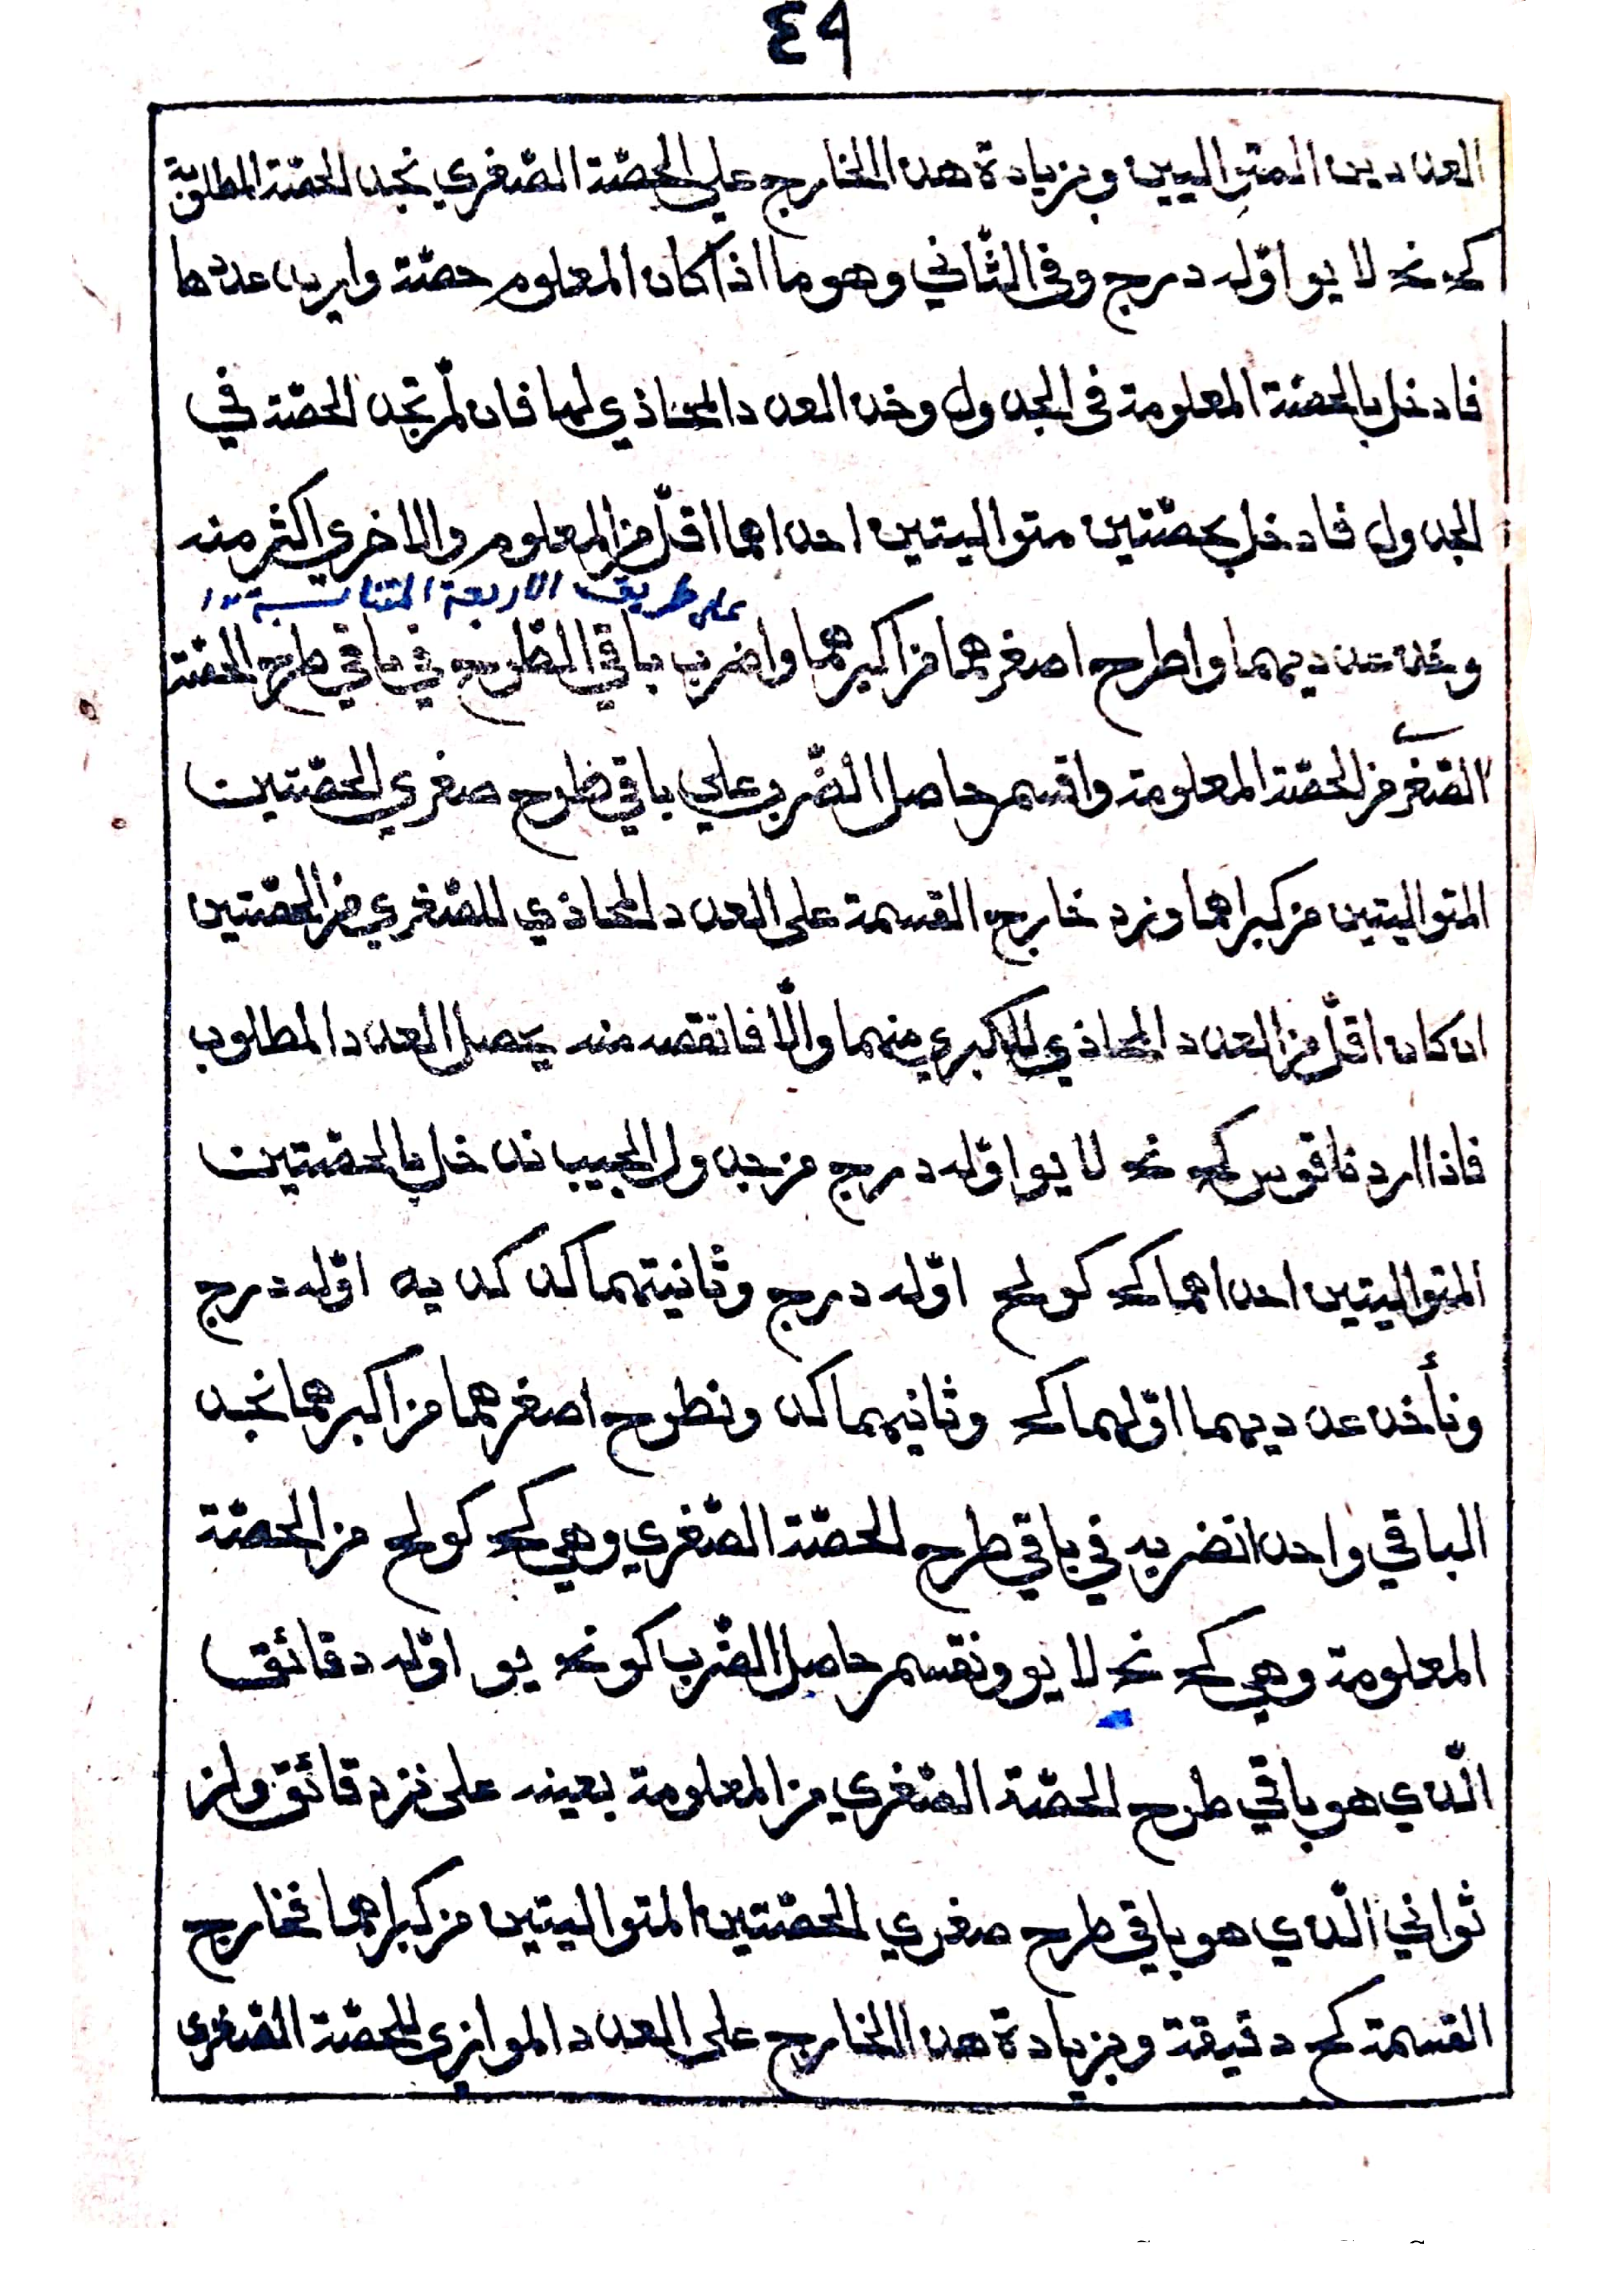 ٤٩
العددين المتواليين وبزيادة هذا الخارج على الحصّة الصّغرى نجد الحصّة المطلوبة
كج نح لا يو اوّله درج وفى الثّاني وهو ما اذا كان المعلوم حصّة واريد عددها
فادخل بالحصّة المعلومة فى الجدول وخذ العدد المحاذي لها فان لّم تجد الحصّة في
الجدول فادخل بحصّتين متواليتين احداهما اقلّ من المعلوم والاخرى اكثر منه
على طريق الاربعة المتناسبة ١٢
وخذ عدديهما واطرح اصغرهما من اكبرهما واضرب باقي الطّرح في باقي طرح الحصّة
الصّغرى من الحصّة المعلومة واقسم حاصل الضّرب على باقي طرح صغري الحصّتين
المتواليتين من كبراهما وزد خارج القسمة على العدد المحاذي للصّغري من الحصّتين
ان كان اقلّ من العدد المحاذي للكبري منهما والّا فانقصه منه يحصل العدد المطلوب
فاذا اردنا قوس كج نح لا يو اوّله درج من جدول الجيب ندخل بالحصّتين
المتواليتين احداهما كج كو لح اوّله درج وثانيتهما كد كد يه اوّله درج
ونأخذ عدديهما اوّلهما كج وثانيهما كد ونطرح اصغرهما من اكبرهما نجد
الباقي واحدا نضربه في باقي طرح الحصّة الصّغري وهي كج كو لح من الحصّة
المعلومة وهي كج نح لا يو ونقسم حاصل الضّرب كو نح يو اوّله دقائق
الّذي هو باقي طرح الحصّة الصّغري من المعلومة بعينه على نز دقائق ولز
ثواني الّذي هو باقي طرح صغري الحصّتين المتواليتين من كبراهما فخارج
القسمة كح دقيقة وبزيادة هذا الخارج على العدد الموازي للحصّة الصّغرى